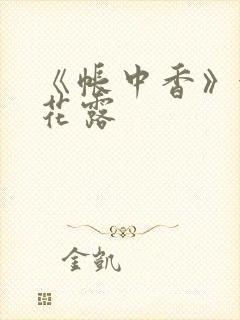 《帐中香》
花露
金凯